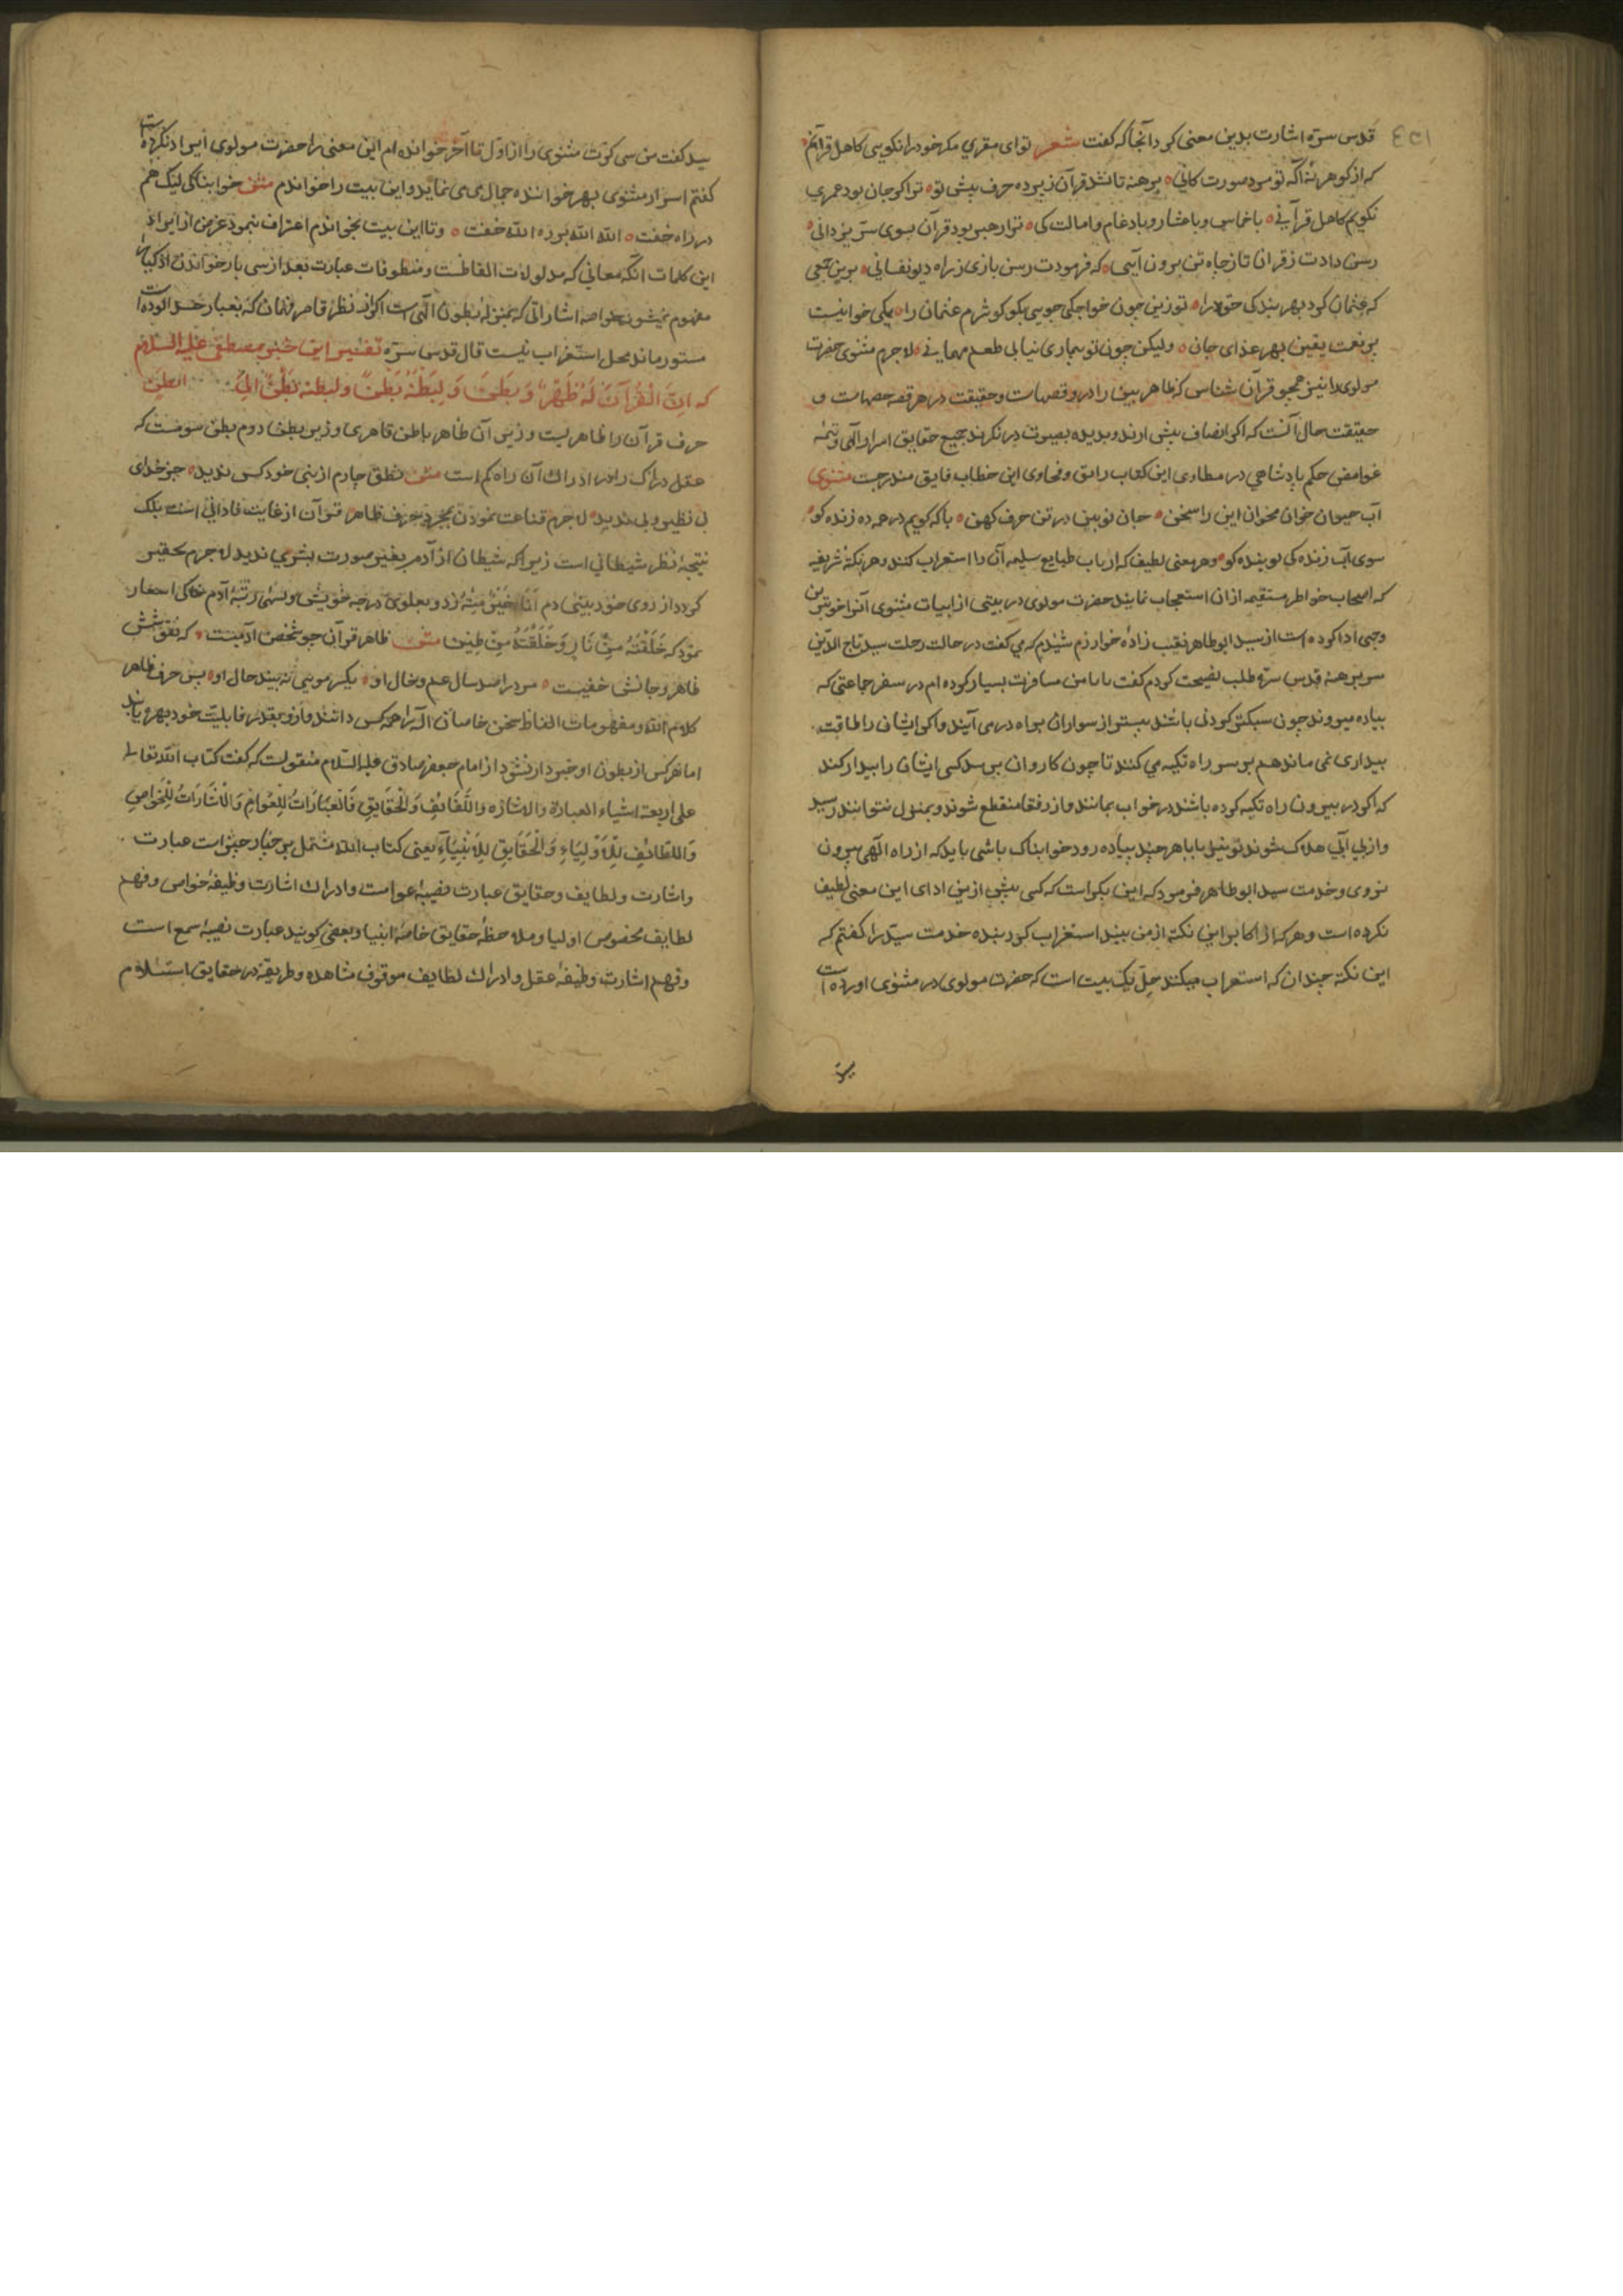 قدس سره اشارت بدین معنی کرد آنجا که گفت شعر توای مقری مکر خود را نکویی کاهل قرآنم
که از کوهر نهٔ آکه تو مرد صورت کانی برهنه تا نشد قرآن ز پرده حرف پیش تو ترا کر جان بود عمری
نکویم کاهل قرآنی باخماس و باعشار و بادغام و امالت کی ترا رهبر بود قرآن بسوی سر یزدانی
رسن دادت ز قران تا ز چاه تن برون آیی که فرمودت رسن بازی ز راه دیو نفسانی برین
که عثمان کرد بهر بندکی حق را تو زین چون خواجکی جویی بکو کو شرم عثمان را یکی خوانیست
پر نعمت یقین بهر غذای جان ولیکن چون تو بیماری نیابی طعم مهمانی لاجرم مثنوی حضرت
مولوی را نیز همچو قرآن شناس که ظاهر بین را درو قصهاست و حقیقت در هر قصه حصهاست و
حقیقت حال آنست که اکر انصاف پیش ارند و بدیده بصیرت درنکرند جمیع حقایق اسرار الهی و
غوامض حکم پادشاهی در مطاوی این کتاب رائق و فحاوی این خطاب فایق مندرجست مثنوی
آب حیوان خوان مخوان این را سخن جان نو بین در تن حرف کهن با که کویم در همه ده زنده کو
سوی آب زندکی پوینده کو و هر معنی لطیف که ارباب طبایع سلیمه آن را استغراب کنند و هر نکتهٔ شریفه
که اصحاب خواطر مستقیمه ازان استعجاب نمایند حضرت مولوی در بیتی از ابیات مثنوی آنرا خوبترین
وجهی ادا کرده است از سید ابوطاهر نقیب زادهٔ خوارزم شنیدم که می کفت در حالت رحلت سید تاج الدین
سر برهنه قدس سره طلب نصیحت کردم کفت بابا من مسافرت بسیار کرده ام در سفر جماعتی که
پیاده میروند چون سبکتر کردنی باشند پیشتر از سواران براه در می آیند و اکر ایشان را طاقت
بیداری نمی ماند هم بر سر راه تکیه می کنند تا چون کاروان برسد کسی ایشان را بیدار کند
که اکر در بیرون راه تکیه کرده باشند در خواب بمانند و از رفقا منقطع شوند و بمنزل نتوانند رسید
و از بی آبی هلاک شوند تو نیز بابا هر چند پیاده رو و خوابناک باشی باید که از راه الهی بیرون
نروی و خدمت سید ابوطاهر فرمود که این بکر است که کسی پیش از من ادای این معنی لطیف
نکرده است و هر که از اکابر این نکته از من بیند استغراب کرد بنده خدمت سید را کفتم که
این نکته چندان که استغراب میکنند حل یک بیت است که حضرت مولوی در مثنوی اورده است
سید کفت من سی کرت مثنوی را از اول تا آخر خوانده ام این معنی را حضرت مولوی ایراد نکرده است
کفتم اسرار مثنوی بهر خواننده جمال می نماید و این بیت را خواندم مثنوی خوابناکی لیک هم
در راه خفت الله الله بر ره الله خفت و تا این بیت بخواندم اعتراف نمود غرض از ایراد
این کلمات آنکه معانی که مدلولات الفاظست و منطوقات عبارت بعد از سی بار خواندن اذکیا را
مفهوم نمیشود خواصه اشاراتی که بمنزلهٔ بطون الهی است اکر از نظر قاصر فهمان که بغبار حسد الوده است
مستور ماند محل استغراب نیست قال قدس سره تفسیر این خبر مصطفی علیه السلام
که ان للقرآن له ظهر و بطن و لبطنه بطن و لبطنه بطن الی البطن
حرف قرآن را ظاهریست و زیر آن ظاهر باطن قاهری و زیر بطن دوم بطن سومست که
عقل دراک را در ادراک آن راه کم است مثنوی بطن چارم از نبی خود کس ندید جز خدای
بی نظیر و بی ندید لاجرم قناعت نمودن بمجرد حرف ظاهر قرآن از غایت نادانی است بلک
نتیجهٔ نظر شیطانی است زیرا که شیطان از آدم بغیر صورت بشری ندید لاجرم تحقیر
کرد و از روی خودبینی دم انا خیر منه زد و بعلوی درجه خویش و رتبهٔ آدم خاکی اشعار
نمود که خلقتنی من نار و خلقته من طین مثنوی ظاهر قرآن چو شخص آدمیست که نقوشش
ظاهر و جانش خفیست مرد را صد سال عم و خال او یکسر مویی نه بیند حال او پس حرف ظاهر
کلام الله و مفهومات الفاظ سخن خاصان اله را همه کس دانند و ازو بقدر قابلیت خود بهره یابند
اما هر کس از بطون او خبردار نشود از امام جعفر صادق علیه السلام منقولست که کفت کتاب الله تعالی
علی اربعة اشیاء العبارة والاشارة واللطائف والحقایق فالعبارات للعوام والاشارات للخواص
واللطائف للاولیاء والحقایق للانبیاء یعنی کتاب الله مشتمل بر چهار چیز است عبارت
و اشارت و لطایف و حقایق عبارت نصیبهٔ عوامست و ادراک اشارت وظیفهٔ خواص و فهم
لطایف مخصوص اولیا و ملاحظهٔ حقایق خاصهٔ انبیا و بعضی کویند عبارت نصیبهٔ سمع است
و فهم اشارت وظیفهٔ عقل و ادراک لطایف موقوف مشاهده و طریقه در حقایق استسلام